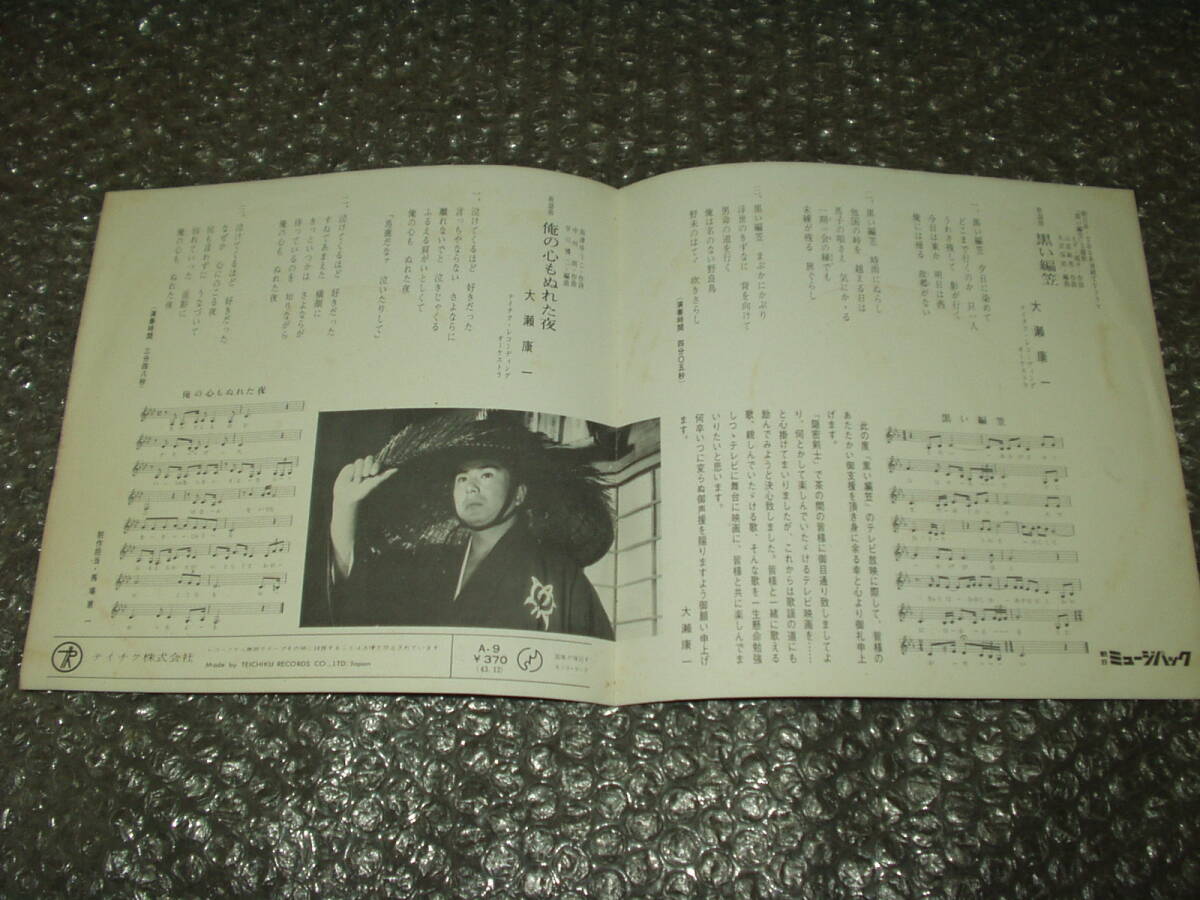 歌謡曲
黒い編笠
大瀬康一
テイチク・レコーディング
オーケストラ
一、黒い編笠 夕日に染めて
どこまで行くのか 只一人
うれき残して 影が行く
今日は東か 明日は西
俺には帰る 故郷がない
二、黒い編笠 時雨にぬらし
他国の峠を 越える日は
馬子の唄さえ 気にかゝる
一期一会の縁でも
未練が残る 旅ぐらし
三、黒い編笠 まぶかにかぶり
浮世のきずなに 背を向けて
男命の道を行く
俺は名のない野良鳥
野末のはてゞ 吹きさらし
(演奏時間 四分〇五秒)
黒い編笠
此の度「黒い編笠」のテレビ放映に際して、皆様の
あたたかい御支援を頂き身に余る幸と心より御礼申上
げます。
「隠密剣士」で茶の間の皆様に御目通り致しましてよ
り、何とかして楽しんでいたゞけるテレビ映画を……
と心掛けてまいりましたが、これからは歌謡の道にも
励んでみようと決心致しました。皆様と一緒に歌える
歌、親しんでいたゞける歌、そんな歌を一生懸命勉強
しつゝテレビに舞台に映画に、皆様と共に楽しんでま
いりたいと思います。
何卒いつに変らぬ御声援を賜りますよう御願い申上げ
ます。
大瀬康一
ミュージパック
歌謡曲
俺の心もぬれた夜
大瀬康一
テイチク・レコーディング
オーケストラ
一、泣けてくるほど 好きだった
言っちやならない さよならに
離れないでと 泣きじゃくる
ふるえる肩がいとしくて
俺の心も ぬれた夜
「馬鹿だなァ 泣いたりして」
二、泣けてくるほど 好きだった
すねてあまえた 横顔に
きっといつかは さよならが
待っているのを 知りながら
俺の心も ぬれた夜
三、泣けてくるほど 好きだった
なぜか 心にのこる夜
何も言わずに うなづいて
別れていった 面影に
俺の心も、ぬれた夜
(演奏時間 三分四八秒)
俺の心もぬれた夜
テイチク株式会社
Made by TEICHIKU RECORDS CO., LTD. Japan
A-9
¥370
(43.12)